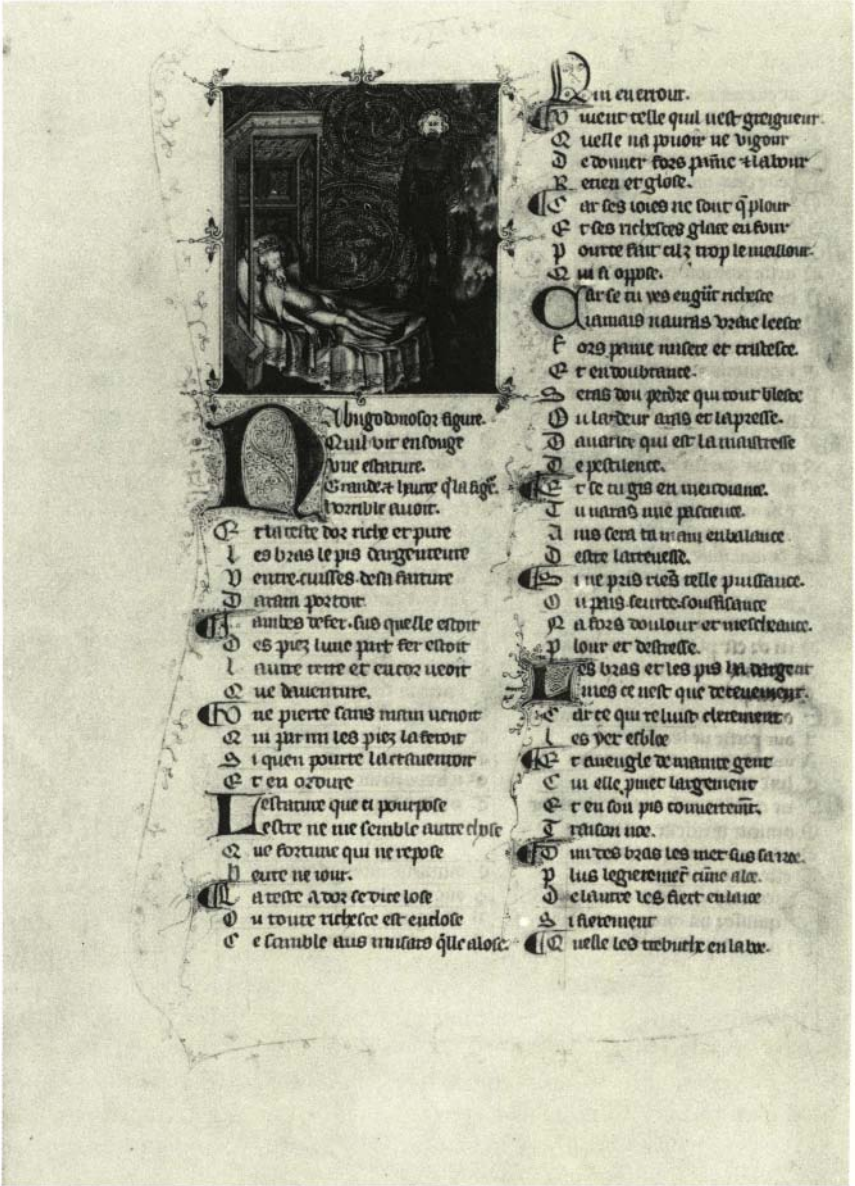 Nabugodonosor figure.
Quil vit en songe
Vne estature.
Grande ⁊ haute q̃ la figẽ.
Horrible auoit.
Et la teste dor riche et pure
Les bras le pis dargenteure
Ventre. cuisses. de sa faiture
Darain portoit.
Jambes de fer. sus quelle estoit
Des piez lune part fer estoit
Lautre terre et encor ueoit
Que dauenture.
Vne pierre sans main uenoit
Qui parmi les piez la feroit
Si quen pourre la crauentoit
Et en ordure
Lestature que ci pourpose
Lestre ne me semble autre chose
Que fortune qui ne repose
Heure ne iour.
La teste a dor se dire lose
Ou toute richesce est enclose
Ce semble aus musars q̃lle alose.
Qui en errour.
Viuent celle quil nest greigneur.
Quelle na pouoir ne vigour
De donner fors painne ⁊ labour
Retien et glose.
Car ses ioies ne sont q̃ plour
Et ses richesces glace en four
Pource fait cilz trop le meillour.
Qui si oppose.
Car se tu yes en gñt richesce
Iamais nauras vraie leesce
Fors paine misere et tristesce.
Et en doubtance.
Seras dou perdre qui tout blesce
Ou lardeur aras et lapresse.
Dauarice qui est la maistresse
De pestilence.
Et se tu gis en mendiance.
Tu naras nue pacience.
Ains sera ta main en balance
Destre larrenesse.
Si ne pris riens telle puissance.
Ou pais. seurte. souffisance
Na fors doulour et mescheance.
Plour et destresse.
Les bras et les pis ha dargent
Mes ce nest que deceuement.
Car ce qui reluist clerement
Les yex esbloe
Et aueugle de mainte gent
Cui elle pmet largement
Et en son pis couuertemẽt.
Traison noe.
Dun des bras les met sus sa roe.
Plus legieremẽt cũne aloe.
De lautre les fiert en la ioe
Si fierement
Quelle les trebuche en la boe.